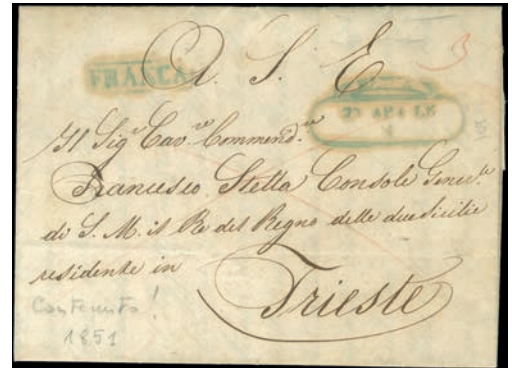 A. S. E.
FRANCA
3
23 APRILE
Il Sig.r Cav.re Commend.re
Francesco Stella Console Gener.le
di S. M. il Re del Regno delle due Sicilie
residente in
Trieste
Contenuto!
1851